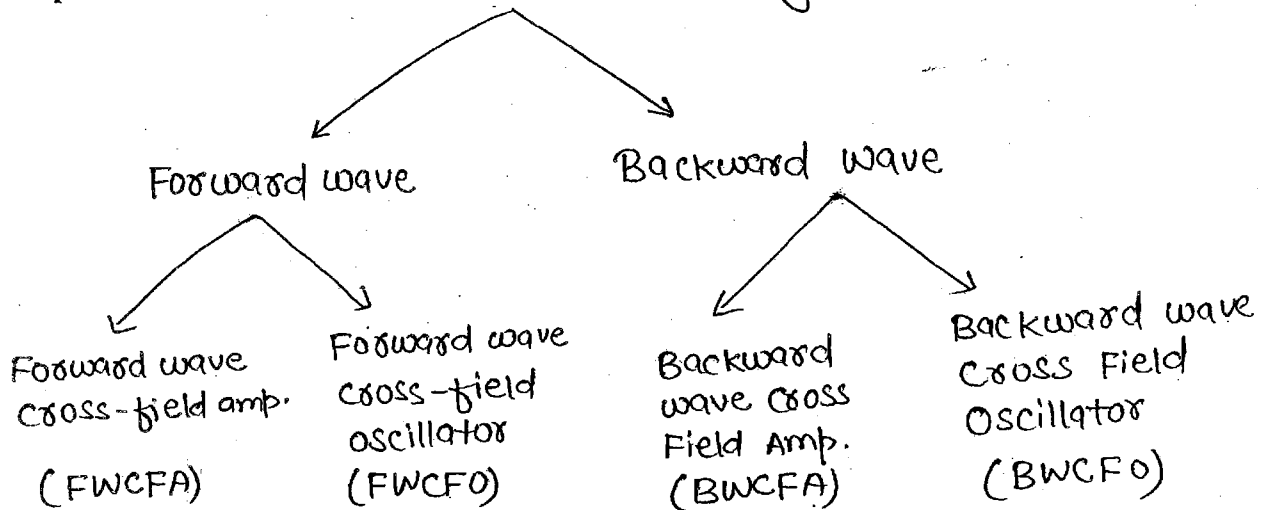 Forward wave
Backward wave
Forward wave
cross-field amp.
(FWCFA)
Forward wave
cross-field
oscillator
(FWCFO)
Backward
wave cross
Field Amp.
(BWCFA)
Backward wave
Cross Field
Oscillator
(BWCFO)